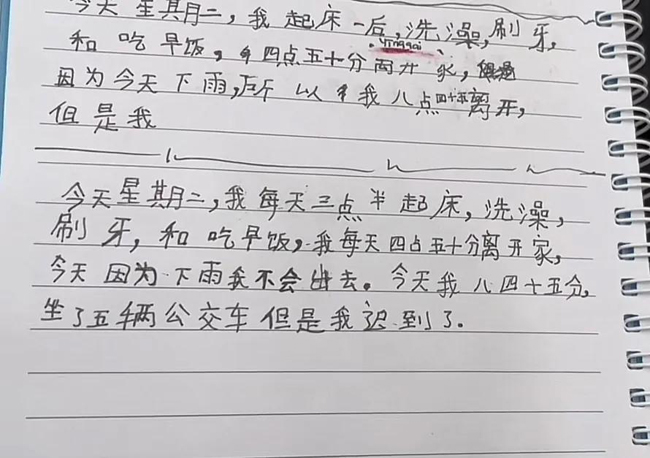 今天星其月二，我起床一后，洗澡，刷牙，
yinggai
和吃早饭，四点五十分离开家，
因为今天下雨，所以我八点四十五离开，
但是我
今天星期二，我每天三点半起床，洗澡，
刷牙，和吃早饭，我每天四占五十分离开家，
今天因为下雨我不会出去。今天我八四十五分，
坐了五辆公交车但是我迟到了.